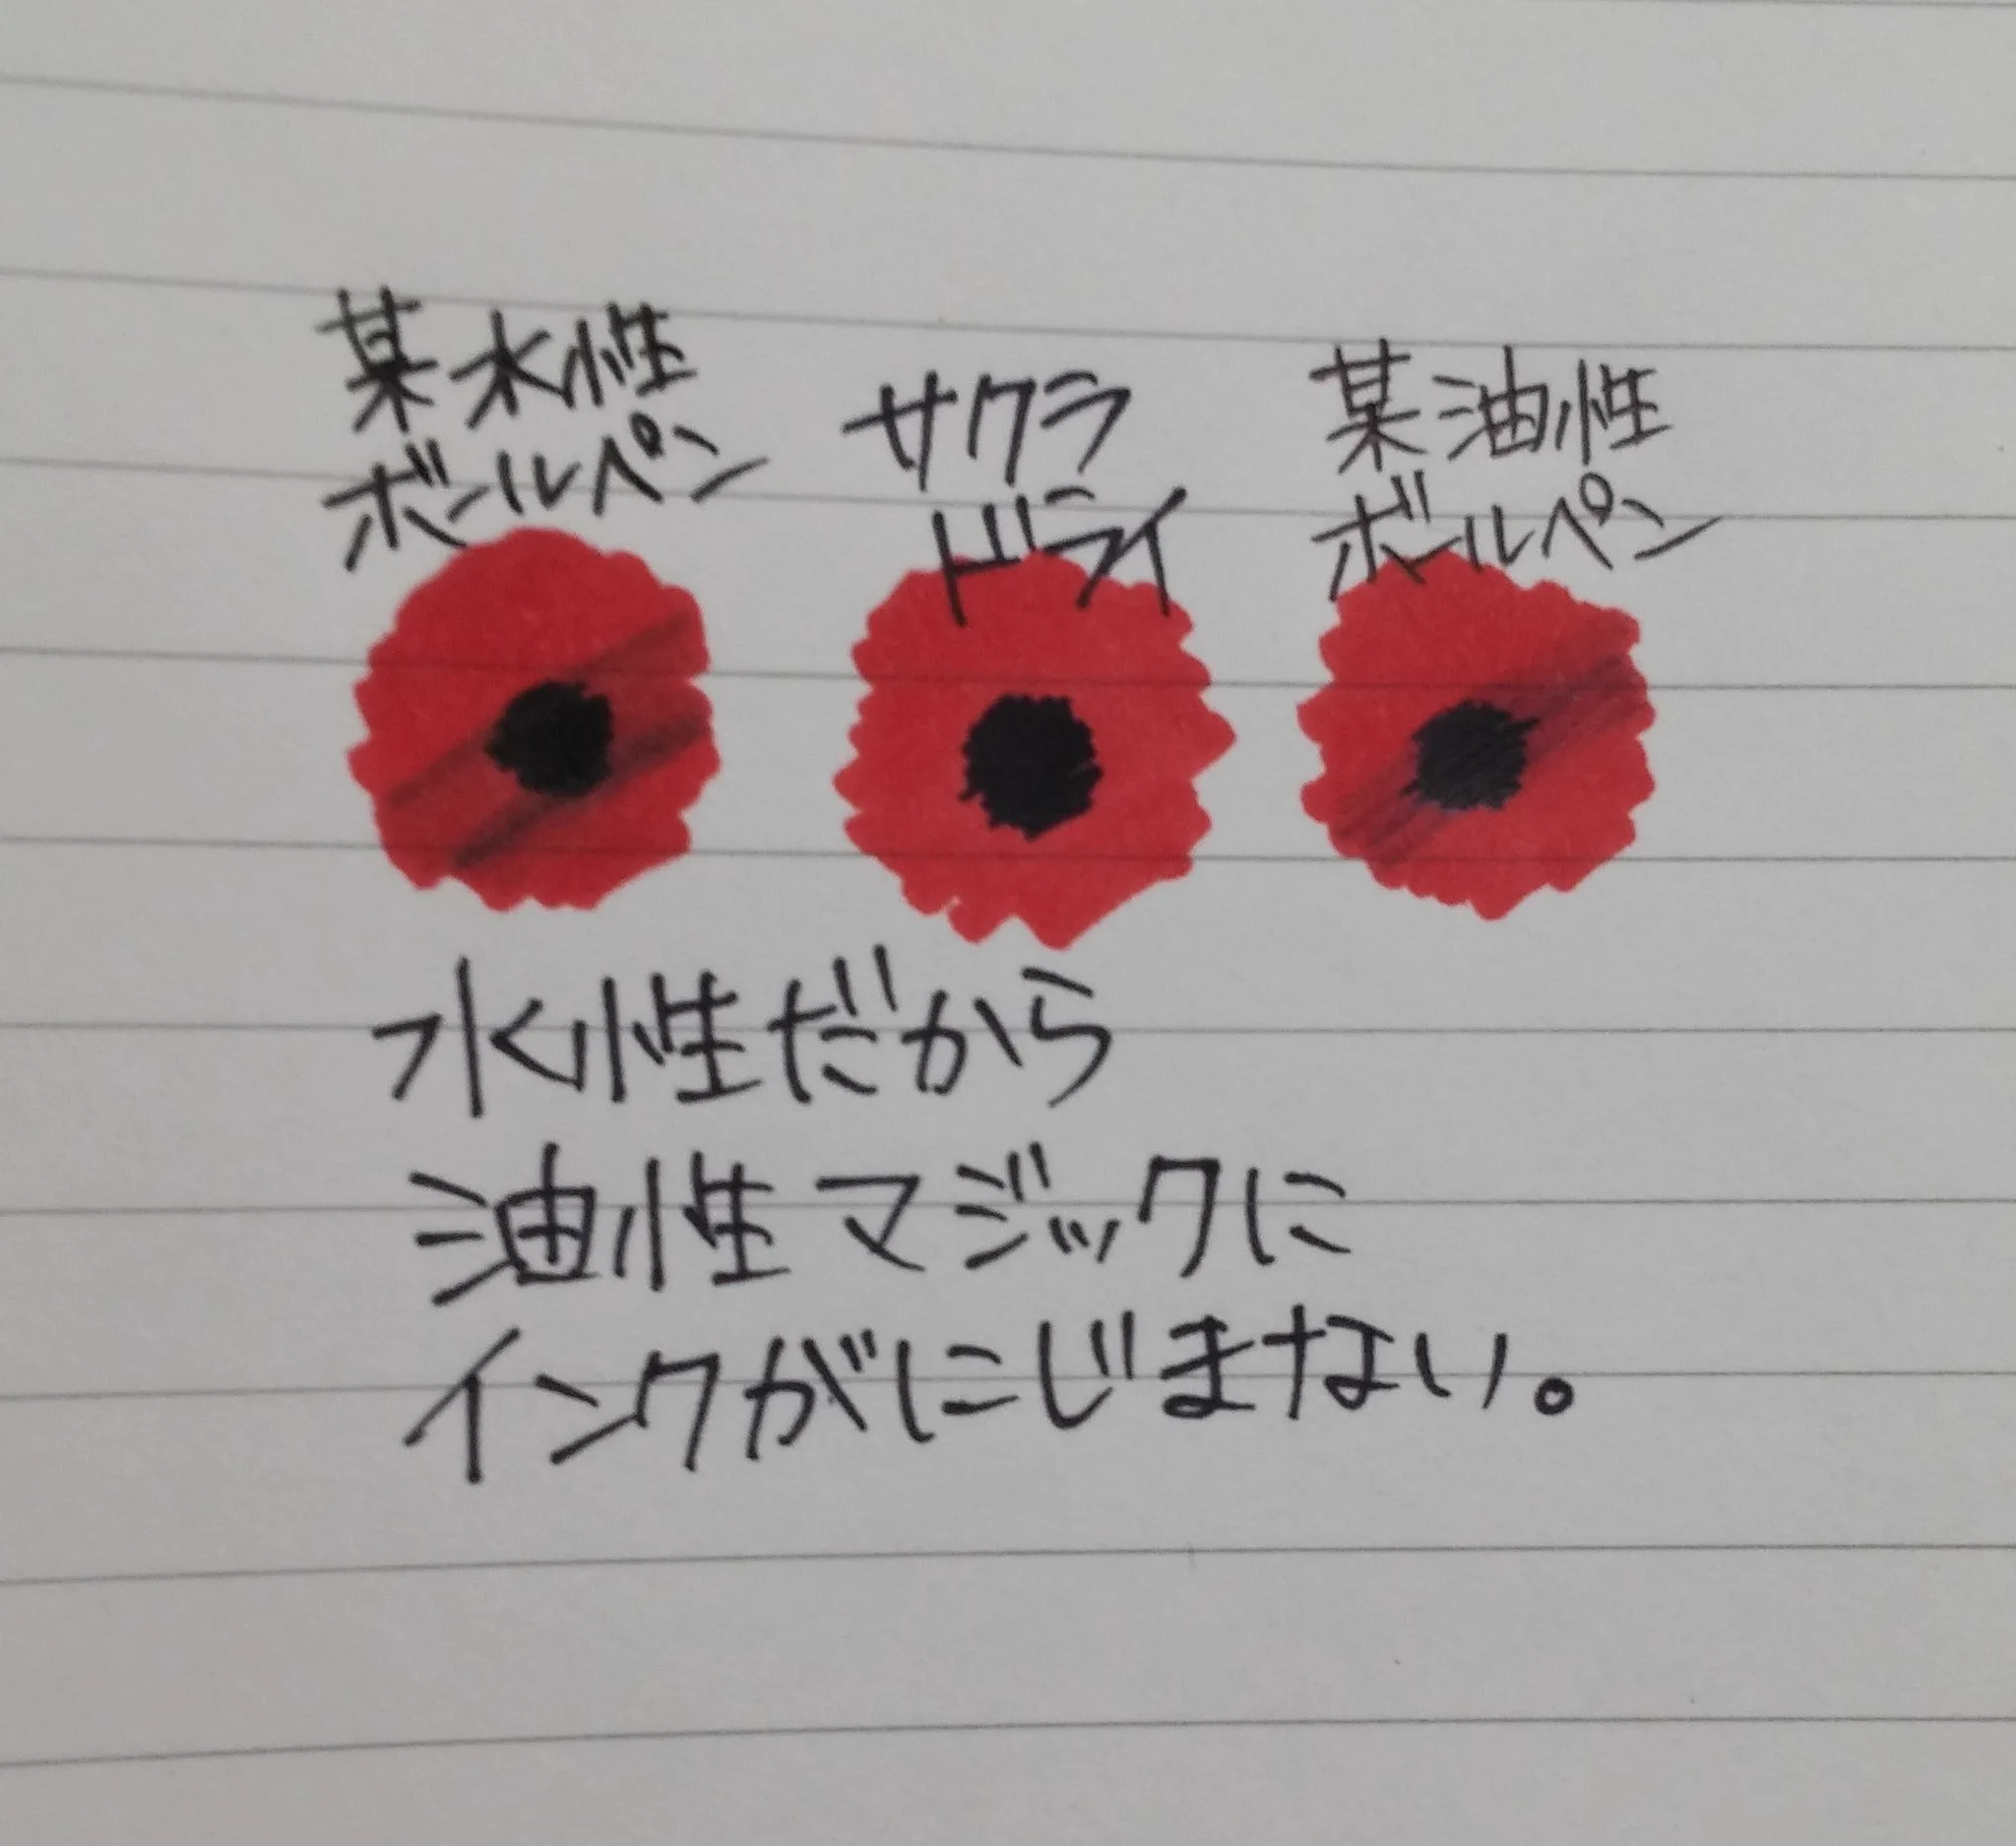 某水性
ボールペン
サクラ
ドライ
某油性
ボールペン
水性だから
油性マジックに
インクがにじまない。